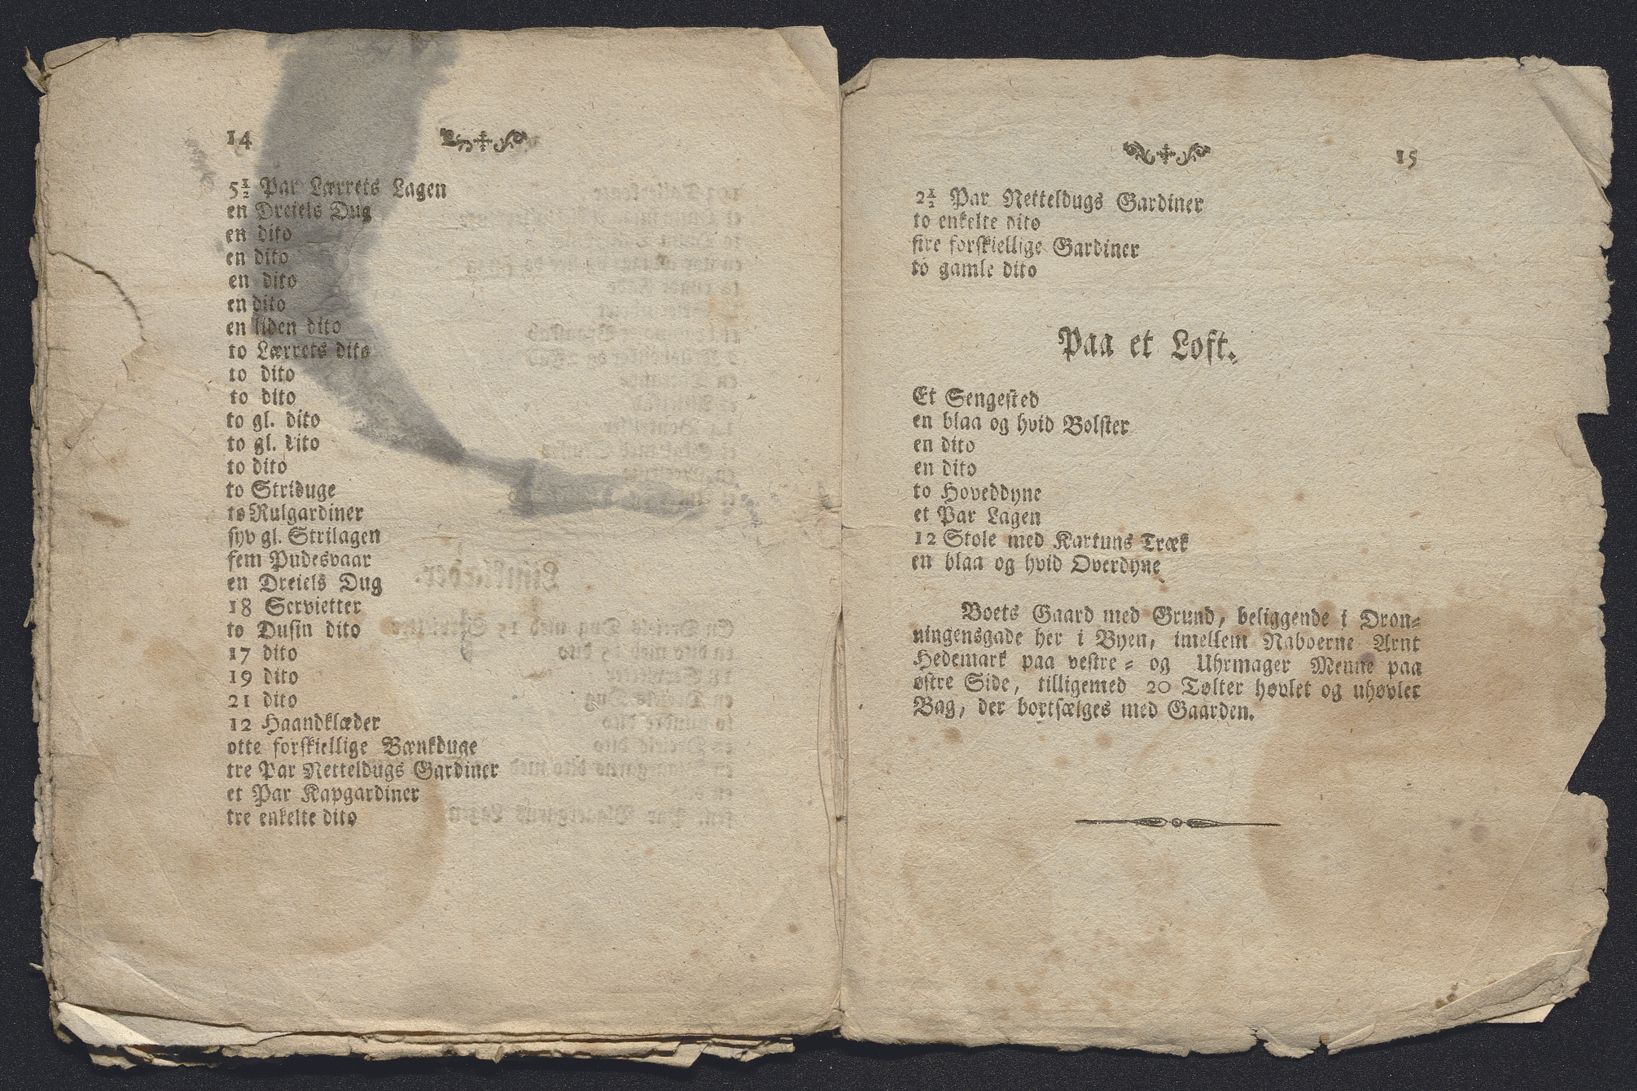 14
5½ Par Lærrets Lagen
en Dreiels Dug
en dito
en dito
en dito
en dito
en liden dito
to Lærrets dito
to dito
to dito
to gl. dito
to gl. dito
to dito
to Striduge
to Rulgardiner
syv gl. Strilagen
fem Pudesvaar
en Dreiels Dug
18 Servietter
to Dusin dito
17 dito
19 dito
21 dito
12 Haandklæder
otte forskiellige Bænkduge
tre Par Netteldugs Gardiner
et Par Kapgardiner
tre enkelte dito
15
2½ Par Netteldugs Gardiner
to enkelte dito
fire forskiellige Gardiner
to gamle dito
Paa et Loft.
Et Sengested
en blaa og hvid Bolster
en dito
en dito
to Hoveddyne
et Par Lagen
12 Stole med Kartuns Træk
en blaa og hvid Overdyne
Boets Gaard med Grund, beliggende i Dron-
ningensgade her i Byen, imellem Naboerne Arnt
Hedemark paa vestre- og Uhrmager Menne paa
østre Side, tilligemed 20 Tølter høvlet og uhøvlet
Bag, der bortsælges med Gaarden.